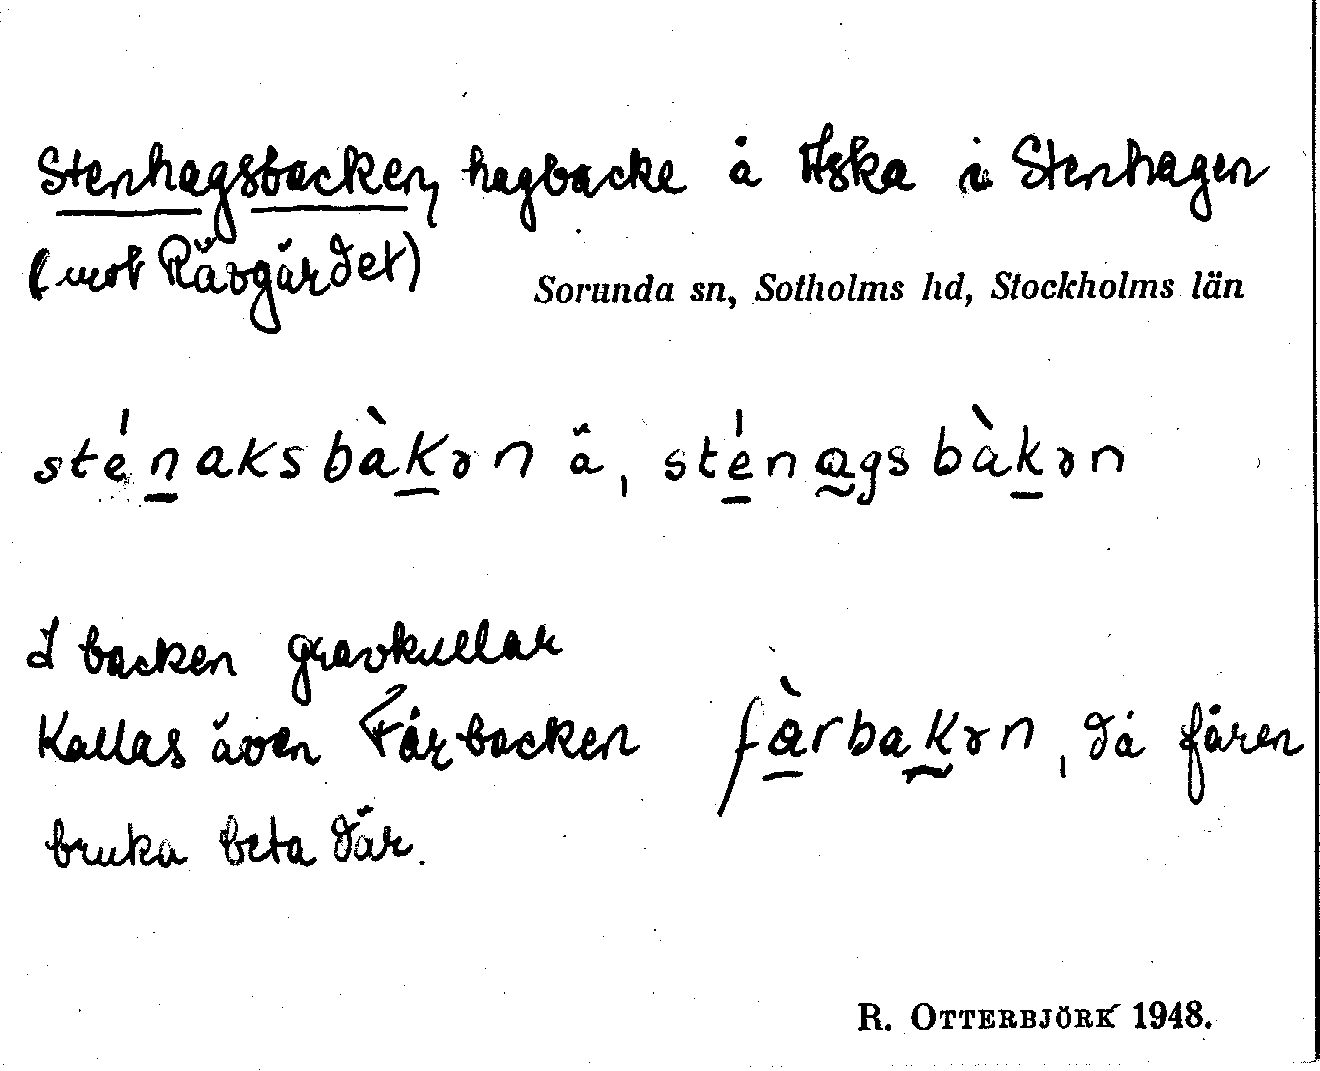 Stenhagsbacken, hagbacke å Aska i Stenhagen
(mot Rävgärdet)
Sorunda sn, Sotholms hd, Stockholms län
sténaksbàkən ä, sténagsbàkən
I backen gravkullar
Kallas även Fårbacken fàrbakən, då fåren
bruka beta där.
R. OTTERBJÖRK 1948.